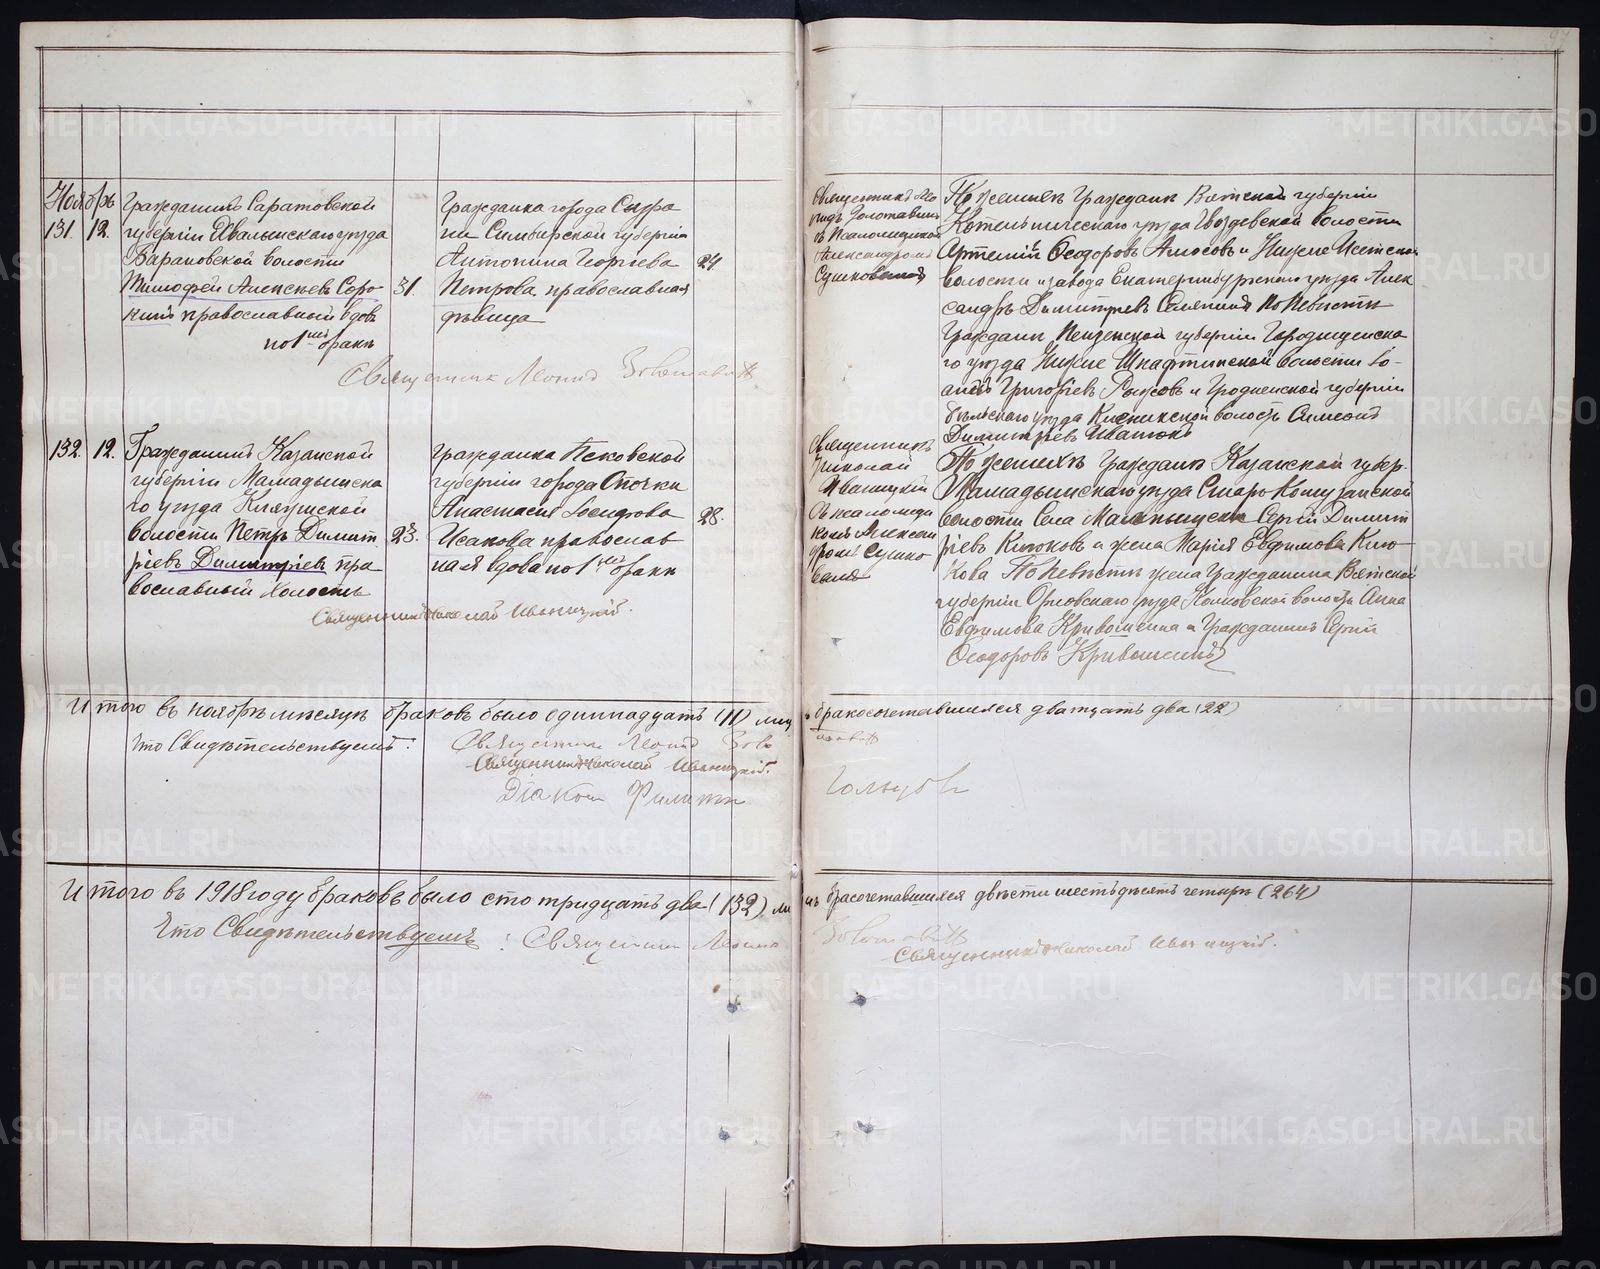 97
Ноябрь
131. 12.
Гражданинъ Саратовской
губерніи Хвалынскаго уѣзда
Барановской волости
Тимофей Алексѣевъ Соро
кинъ православный вдовъ
по 1 мъ бракѣ
31.
Гражданка города Сызра
ни Симбирской губерніи
Антонина Георгіева
Петрова православная
дѣвица
24
Священникъ Леонидъ
Священникъ Лео
нидъ
съ псаломщикомъ
Александромъ
Сушковымъ
По женихѣ Гражданинъ Вятской губерніи
Котельническаго уѣзда Гвоздевской волости
Артемій Ѳеодоровъ Амосовъ и Нижне Исетской
волости и завода Екатеринбургскаго уѣзда Алек
сандръ Димитріевъ По невѣстѣ
Гражданинъ Пензенской губерніи Городищенска
го уѣзда Нижне Шкафтинской волости Іо-
аннъ Григоріевъ и Гродненской губерніи
Бѣльскаго уѣзда волости Симеонъ
Димитріевъ Иватокъ
132. 12.
Гражданинъ Казанской
губерніи Мамадышска
го уѣзда Кляушской
волости Петръ Димит
ріевъ Димитріевъ пра
вославный холостъ
23.
Гражданка Псковской
губерніи города Опочки
Анастасія Іосифова
Исакова православ
ная вдова по 1 мъ бракѣ
28.
Священникъ Николай Иваницкій.
Священникъ
Николай
Иваницкій
съ псаломщи
комъ Алексан
дромъ Сушко
вымъ
По женихѣ Гражданинъ Казанской губер.
Мамадышскаго уѣзда Старо Кошузанской
волости Села Сергій Димит
ріевъ Клюковъ и жена Марія Евфимова Клю-
кова По невѣстѣ жена Гражданина Вятской
губерніи Орловскаго уѣзда волости Анна
Евфимова Кривошеина и Гражданинъ Сергій
Ѳеодоровъ Кривошеинъ
Итого въ ноябрѣ мѣсяцѣ браковъ было одиннадцать (11) лицъ бракосочетавшихся двадцать два (22)
Что Свидѣтельствуемъ: Священникъ Леонидъ
Священникъ Николай Иваницкій.
Діаконъ Филиппъ Гольцовъ
Итого въ 1918 году браковъ было сто тридцать два (132) лицъ брасочетавшихся двѣсти шестьдесятъ четыре (264)
Что Свидѣтельствуемъ: Священникъ Леонидъ
Священникъ Николай Иваницкій.
METRIKI.GASO-URAL.RU